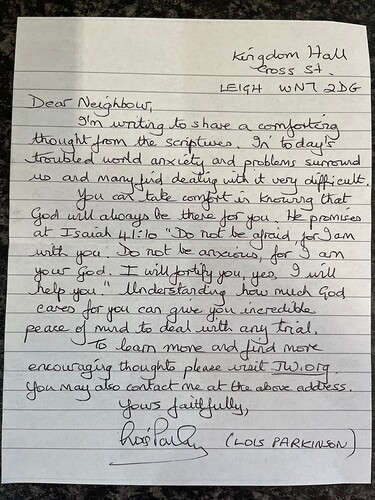 Kingdom Hall
Cross St.
LEIGH WN7 2DG
Dear Neighbour,
I'm writing to share a comforting
thought from the scriptures. In today's
troubled world anxiety and problems surround
us and many find dealing with it very difficult.
You can take comfort in knowing that
God will always be there for you. He promises
at Isaiah 41:10 "Do not be afraid, for I am
with you. Do not be anxious, for I am
your God. I will fortify you, yes, I will
help you." Understanding how much God
cares for you can give you incredible
peace of mind to deal with any trial.
To learn more and find more
encouraging thoughts please visit JW.org.
You may also contact me at the above address.
Yours faithfully,
Lois Parkin (LOIS PARKINSON)